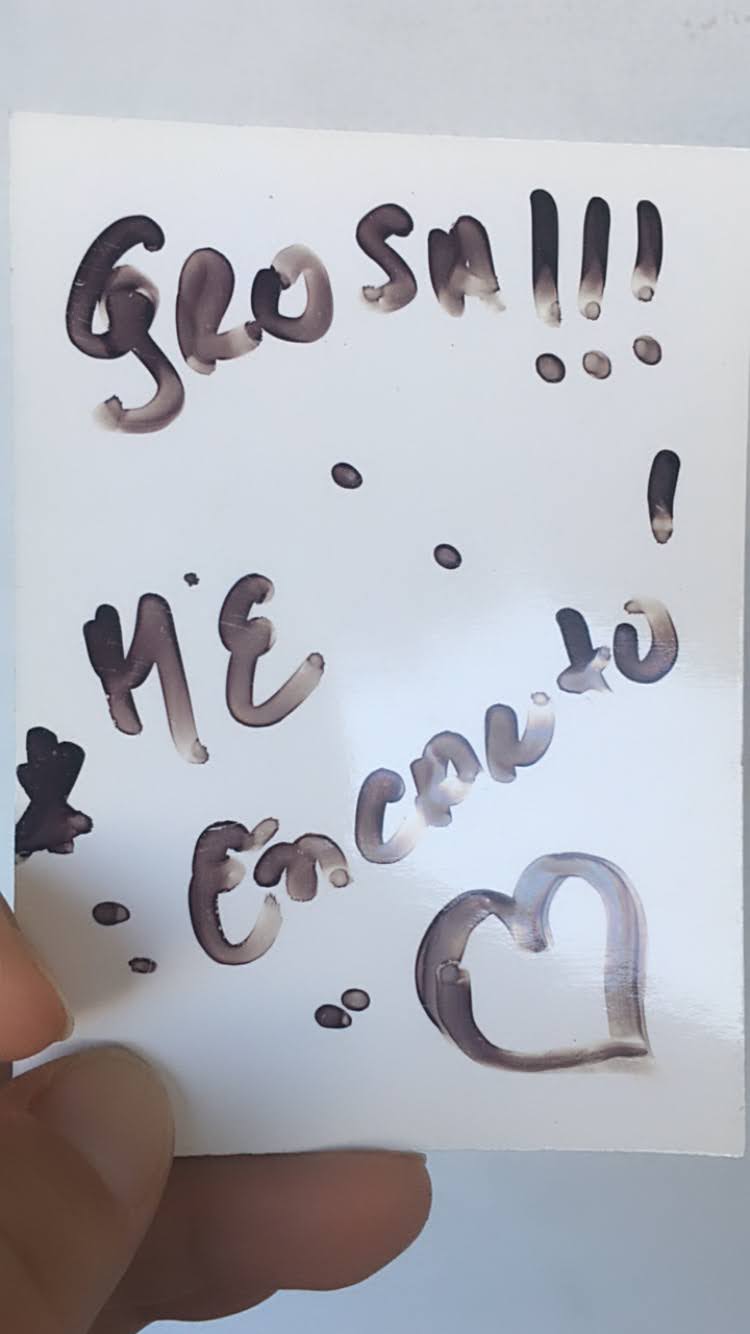 GROSA!!!
ME
Encanto!